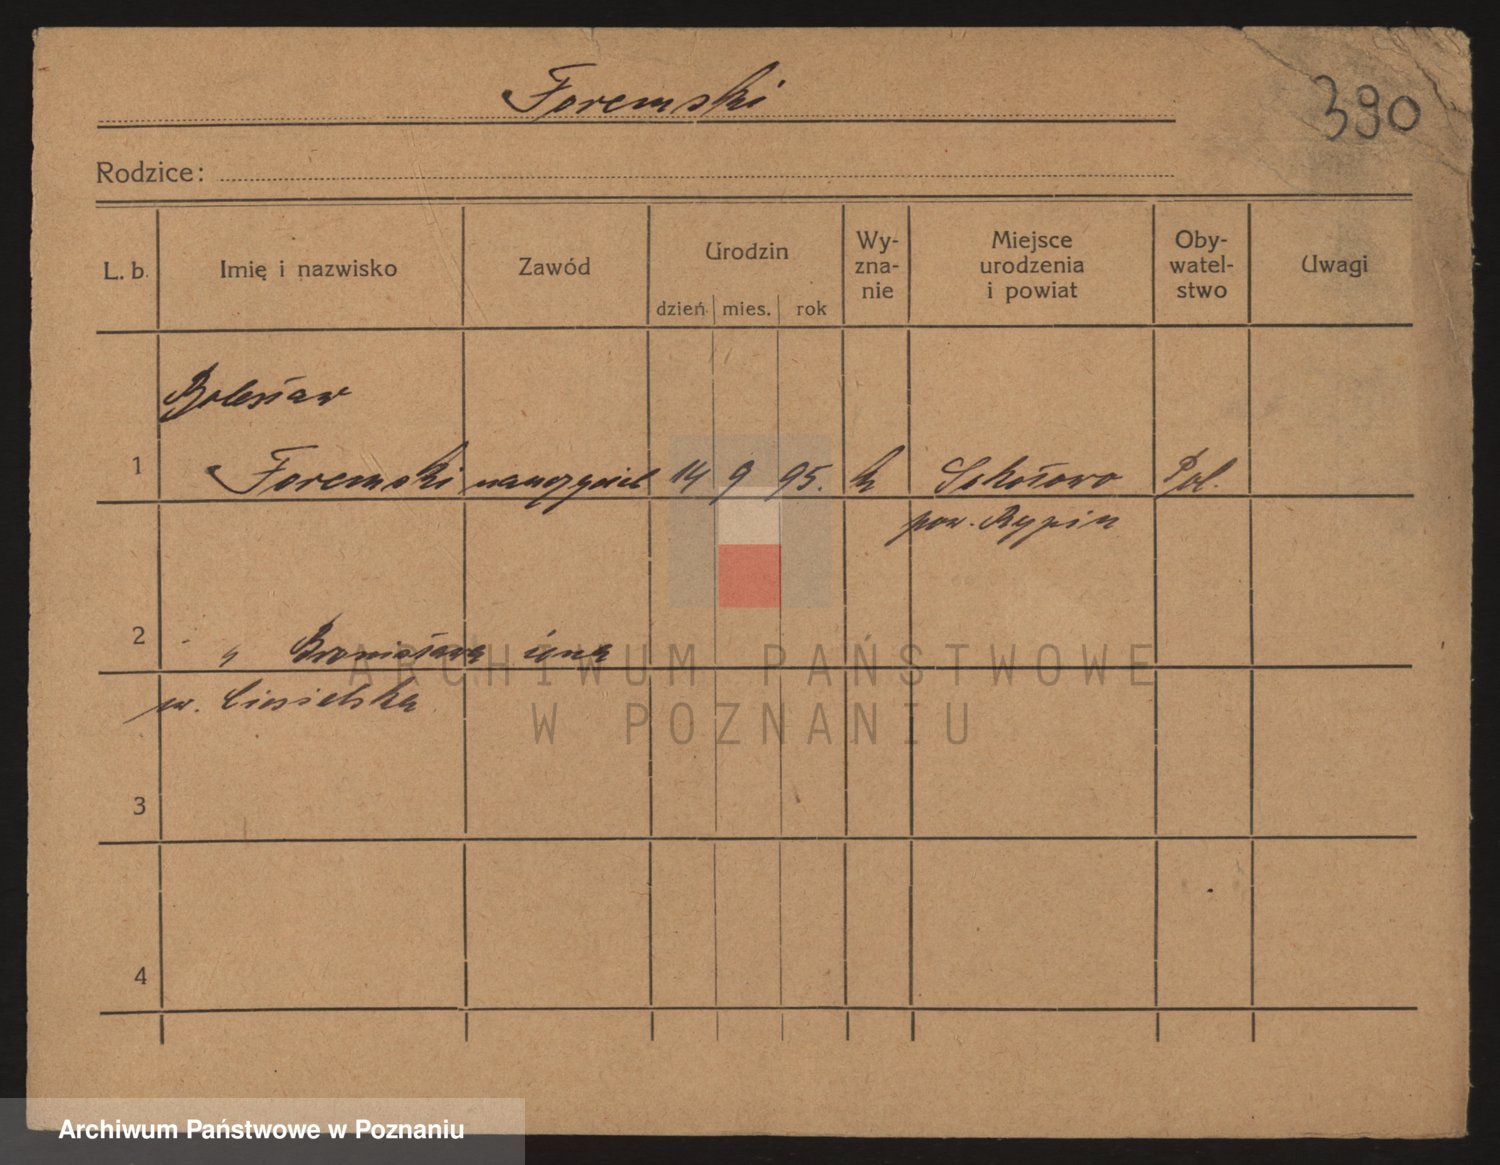 Foremski
390
Rodzice:
L. b. Imię i nazwisko Zawód Urodzin dzień mies. rok Wy-zna-nie Miejsce urodzenia i powiat Oby-watel-stwo Uwagi
Bolesław
1 Foremski nauczyciel 14 9 95. k Sokołowo Pol.
pow. Rypin
2 " Bronisława żona
ur. Ciesielska
3
4
ARCHIWUM PAŃSTWOWE
W POZNANIU
Archiwum Państwowe w Poznaniu